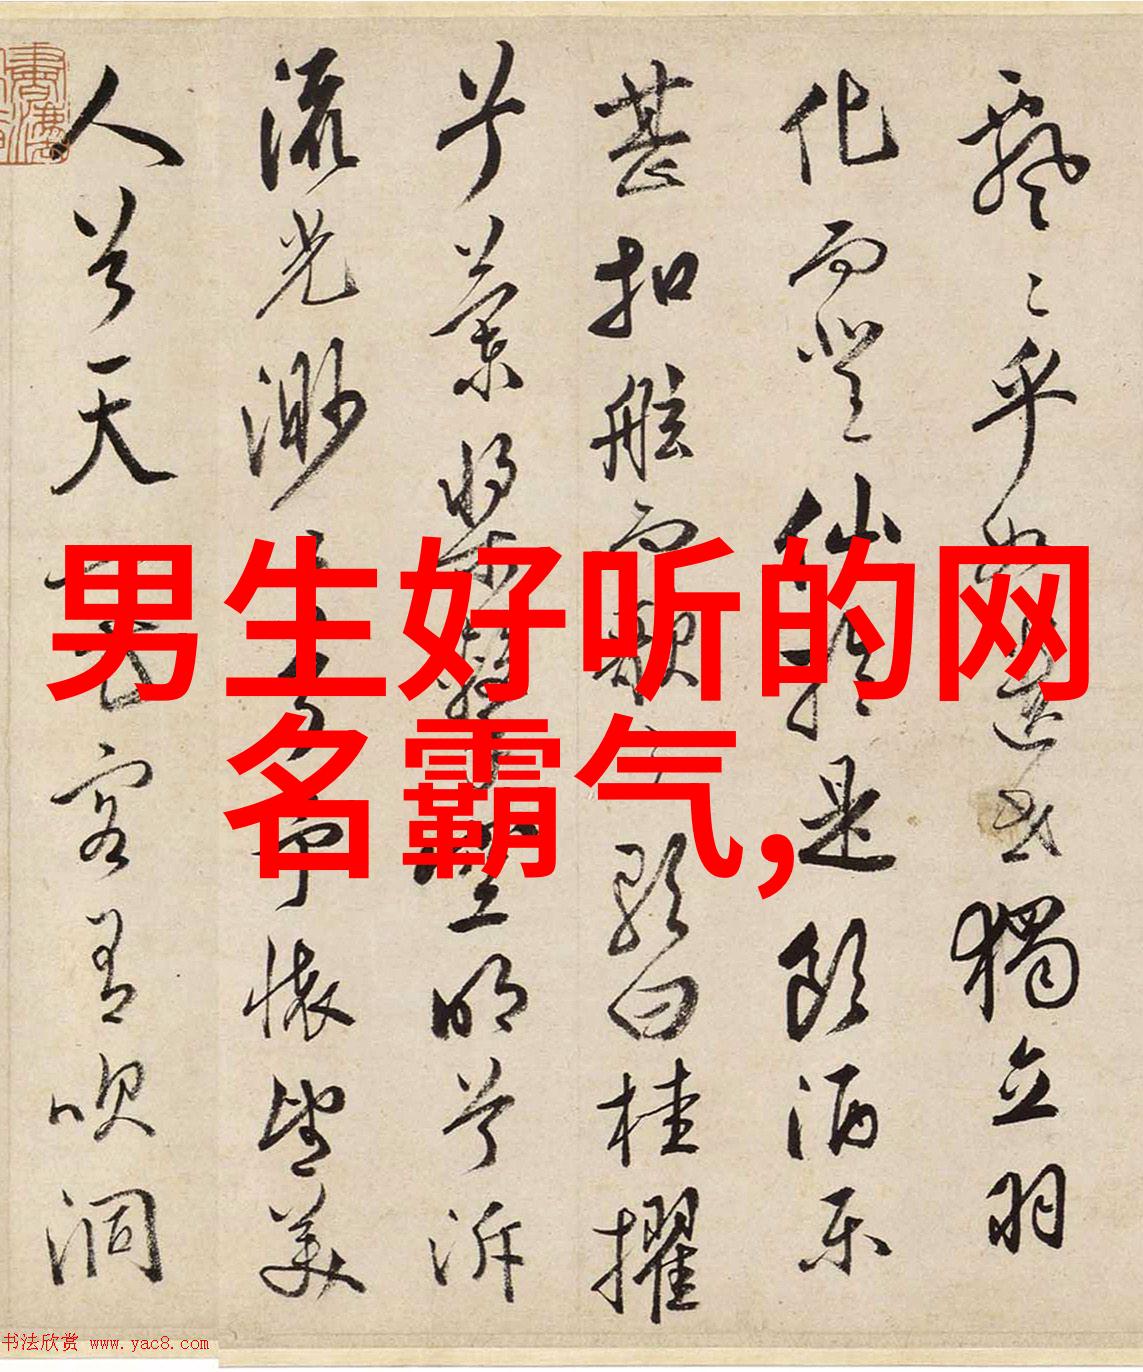 飄〻乎如遺世獨立羽
化而登仙於是飲酒樂
甚扣舷而歌之歌曰桂擢
兮蘭槳擊空明兮泝
流光渺〻兮予懷望美
人兮天一方客有吹洞
男生好听的网
名霸气,
书法欣赏 www.yac8.com